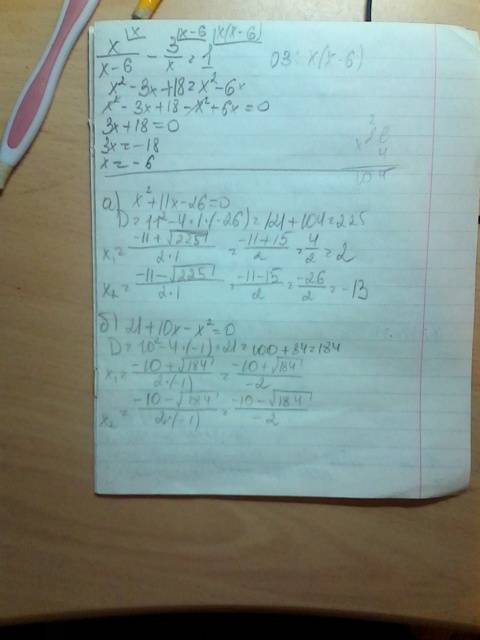 x/(x-6) - 3/x = 1 |x |x-6 |x(x-6) ОЗ: x(x-6)
x²-3x+18=x²-6x
x²-3x+18-x²+6x=0
3x+18=0
3x=-18
x=-6
а) x²+11x-26=0
D=11²-4·1·(-26)=121+104=225
x₁= (-11+√225)/(2·1) = (-11+15)/2 = 4/2 = 2
x₂= (-11-√225)/(2·1) = (-11-15)/2 = -26/2 = -13
б) 21+10x-x²=0
D=10²-4·(-1)·21=100+84=184
x₁= (-10+√184)/(2·(-1)) = (-10+√184)/-2
x₂= (-10-√184)/(2·(-1)) = (-10-√184)/-2
2
x 26
4
104